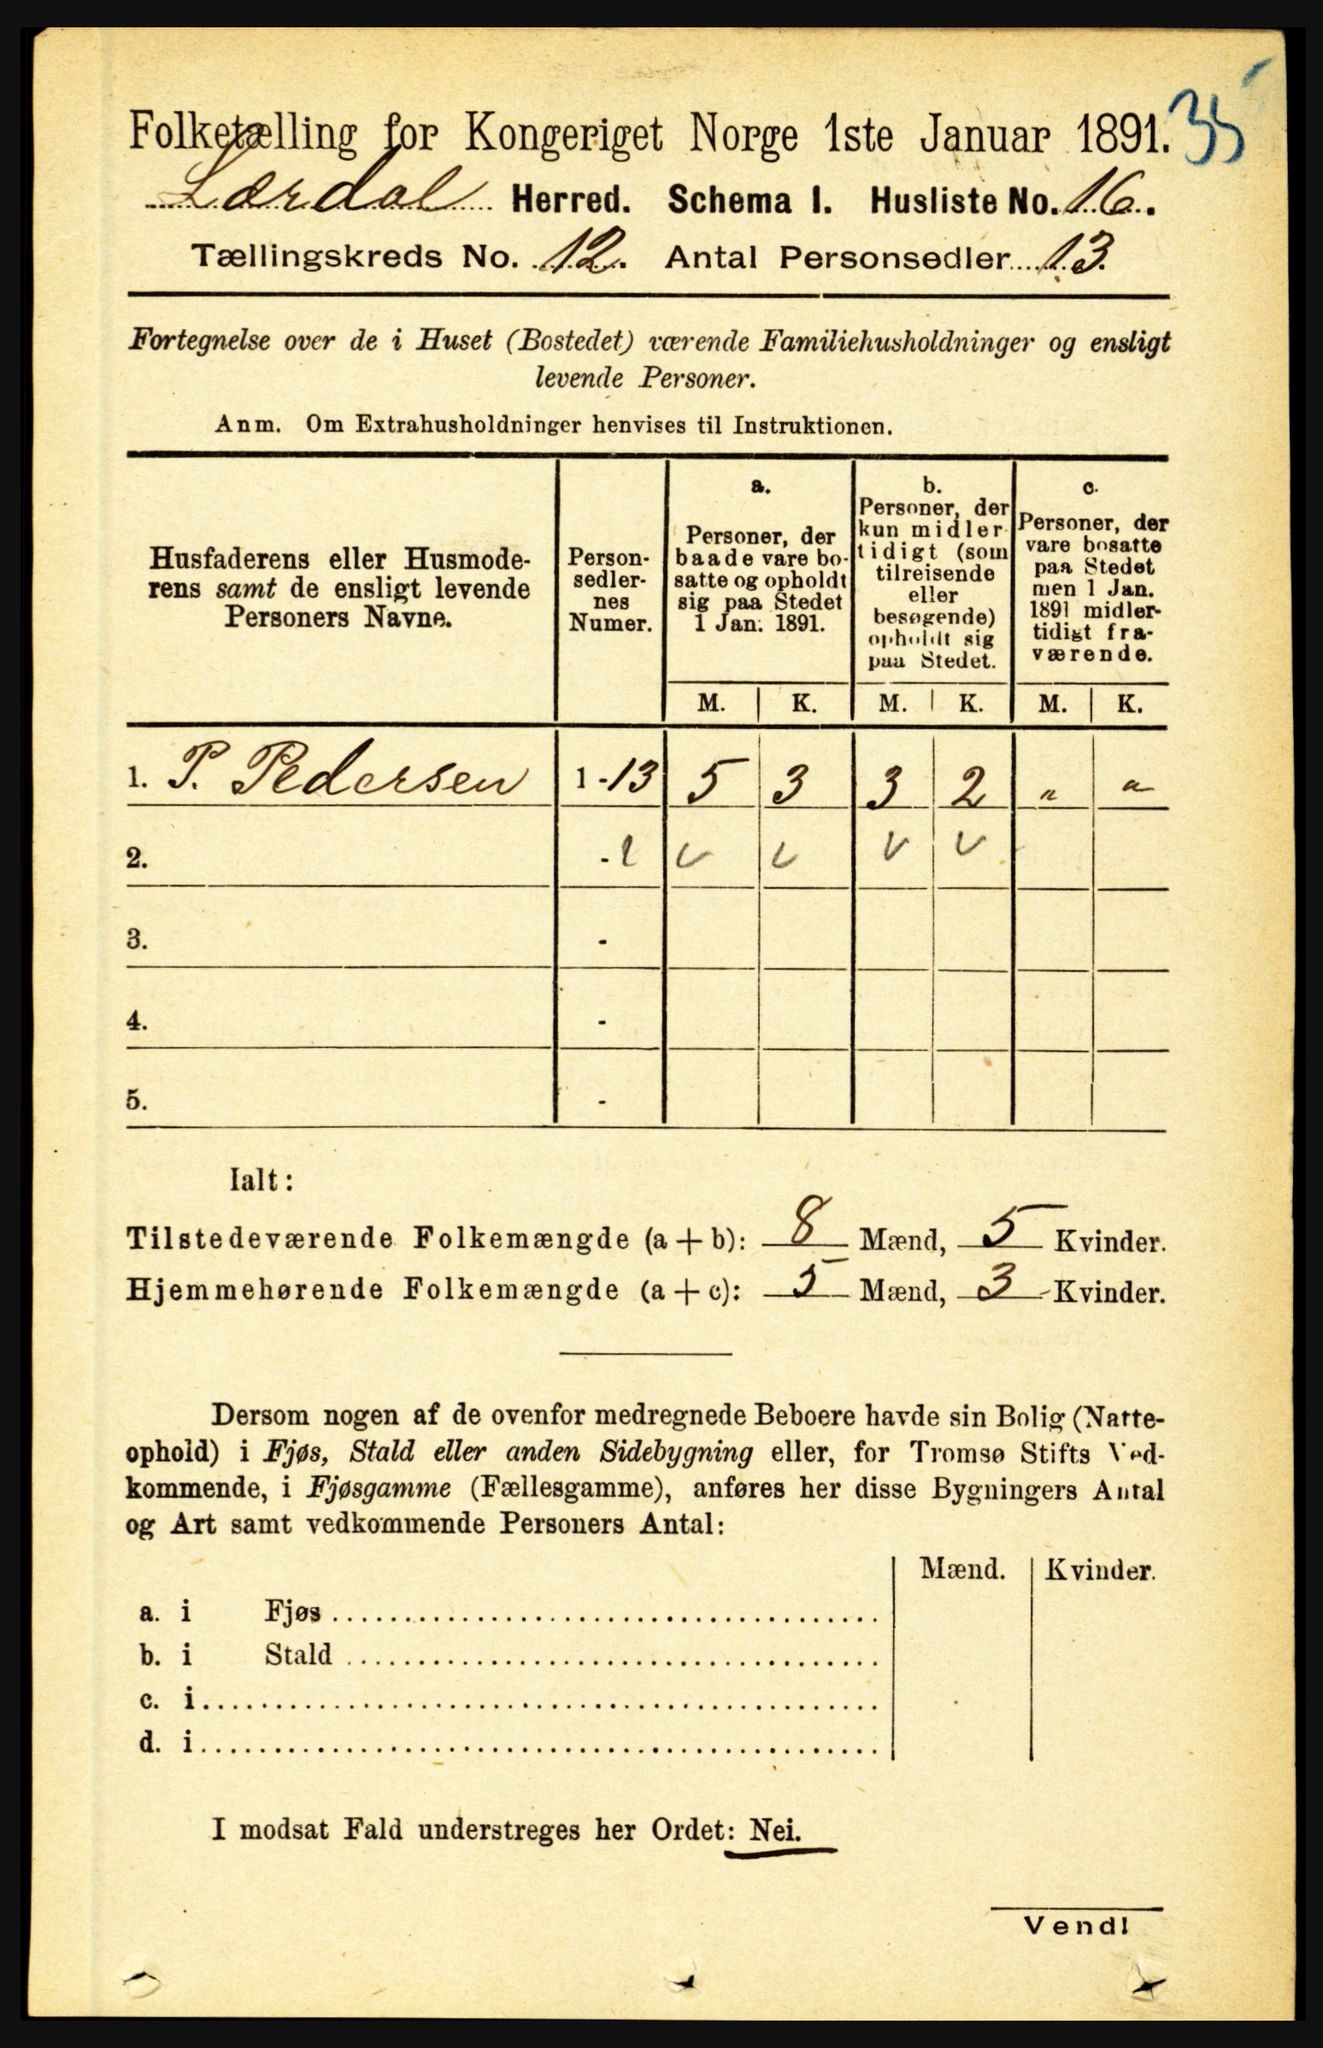 Folketælling for Kongeriget Norge 1ste Januar 1891. 35
Lærdal Herred. Schema I. Husliste No. 16.
Tællingskreds No. 12. Antal Personsedler 13.
Fortegnelse over de i Huset (Bostedet) værende Familiehusholdninger og ensligt
levende Personer.
Anm. Om Extrahusholdninger henvises til Instruktionen.
Husfaderens eller Husmode-
rens samt de ensligt levende
Personers Navne.
Person-
sedler-
nes
Numer.
a.
Personer, der
baade vare bo-
satte og opholdt
sig paa Stedet
1 Jan. 1891.
b.
Personer, der
kun midler
tidigt (som
tilreisende
eller
besøgende)
opholdt sig
paa Stedet.
c.
Personer, der
vare bosatte
paa Stedet
men 1 Jan.
1891 midler-
tidigt fra-
værende.
M. K. M. K. M. K.
1. P. Pedersen 1 - 13 5 3 3 2 " "
2. - v v v v v
3. -
4. -
5. -
Ialt:
Tilstedeværende Folkemængde (a + b): 8 Mænd, 5 Kvinder.
Hjemmehørende Folkemængde (a + c): 5 Mænd, 3 Kvinder.
Dersom nogen af de ovenfor medregnede Beboere havde sin Bolig (Natte-
ophold) i Fjøs, Stald eller anden Sidebygning eller, for Tromsø Stifts Ved-
kommende, i Fjøsgamme (Fællesgamme), anføres her disse Bygningers Antal
og Art samt vedkommende Personers Antal:
Mænd. Kvinder.
a. i Fjøs
b. i Stald
c. i
d. i
I modsat Fald understreges her Ordet: Nei.
Vend!